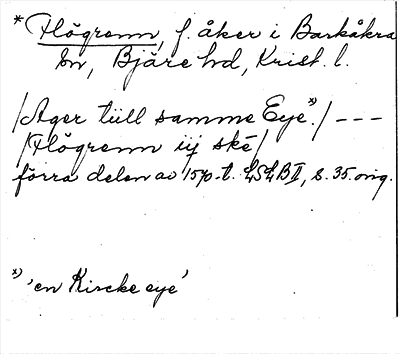 * Flögrenn, f. åker i Barkåkra
sn, Bjäre hd, Krist. l.
/Ager tüll samme Eye.*)/ ---
/Flögrenn iij ske/
förra delen av 1570-t. LSLB II, s. 35. orig.
*) 'en Kircke eye'